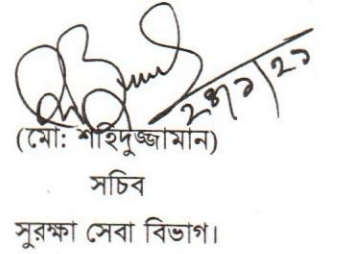 ২৪/৯/২৯
(মো: শহিদুজ্জামান)
সচিব
সুরক্ষা সেবা বিভাগ।